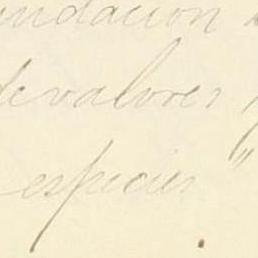 undacion
de valores y
especies"